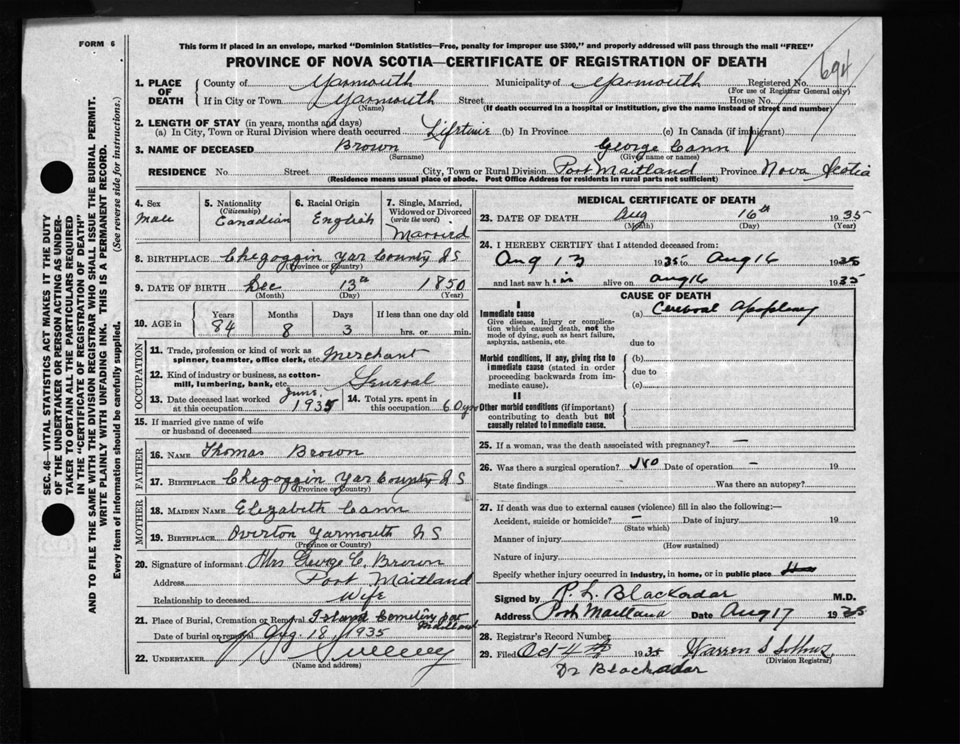 FORM 6
This form if placed in an envelope, marked "Dominion Statistics—Free, penalty for improper use $300," and properly addressed will pass through the mail "FREE"
PROVINCE OF NOVA SCOTIA—CERTIFICATE OF REGISTRATION OF DEATH
694
1. PLACE OF DEATH County of Yarmouth Municipality of Yarmouth Registered No.
(For use of Registrar General only)
If in City or Town Yarmouth Street House No.
(Name) (If death occurred in a hospital or institution, give the name instead of street and number)
2. LENGTH OF STAY (in years, months and days)
(a) In City, Town or Rural Division where death occurred Lifetime (b) In Province (c) In Canada (if immigrant)
3. NAME OF DECEASED Brown George Cann
(Surname) (Given name or names)
RESIDENCE No Street City, Town or Rural Division Port Maitland Province Nova Scotia
(Residence means usual place of abode. Post Office Address for residents in rural parts not sufficient)
SEC. 46—VITAL STATISTICS ACT MAKES IT THE DUTY
OF THE UNDERTAKER OR PERSON ACTING AS UNDER-
TAKER TO OBTAIN ALL THE PARTICULARS REQUIRED
IN THE "CERTIFICATE OF REGISTRATION OF DEATH"
AND TO FILE THE SAME WITH THE DIVISION REGISTRAR WHO SHALL ISSUE THE BURIAL PERMIT.
WRITE PLAINLY WITH UNFADING INK. THIS IS A PERMANENT RECORD.
Every item of information should be carefully supplied. (See reverse side for instructions.)
4. Sex 5. Nationality 6. Racial Origin 7. Single, Married,
(Citizenship) Widowed or Divorced
(write the word)
Male Canadian English Married
8. BIRTHPLACE Chegoggin Yar County NS
(Province or Country)
9. DATE OF BIRTH Dec 13th 1850
(Month) (Day) (Year)
10. AGE in Years Months Days If less than one day old
84 8 3 hrs. or min.
OCCUPATION
11. Trade, profession or kind of work as
spinner, teamster, office clerk, etc. Merchant
12. Kind of industry or business, as cotton-
mill, lumbering, bank, etc. General
13. Date deceased last worked
at this occupation June 1935
14. Total yrs. spent in
this occupation 60 yrs
15. If married give name of wife
or husband of deceased
FATHER
16. NAME Thomas Brown
17. BIRTHPLACE Chegoggin Yar County NS
(Province or Country)
MOTHER
18. MAIDEN NAME Elizabeth Cann
19. BIRTHPLACE Overton Yarmouth NS
(Province or Country)
20. Signature of informant Mrs George C. Brown
Address Port Maitland
Relationship to deceased Wife
21. Place of Burial, Cremation or Removal Island Cemetery Port Maitland
Date of burial or removal Aug. 18, 1935
22. UNDERTAKER Sweeney
(Name and address)
MEDICAL CERTIFICATE OF DEATH
23. DATE OF DEATH Aug 16th 1935
(Month) (Day) (Year)
24. I HEREBY CERTIFY that I attended deceased from:
Aug 13 1935 to Aug 16 1935
and last saw him alive on Aug 16 1935
CAUSE OF DEATH
I
Immediate cause (a) Cerebral Apoplexy
Give disease, injury or complica-
tion which caused death, not the
mode of dying, such as heart failure,
asphyxia, asthenia, etc. due to
Morbid conditions, if any, giving rise to
immediate cause (stated in order
proceeding backwards from im-
mediate cause). (b)
due to
(c)
II
Other morbid conditions (if important)
contributing to death but not
causally related to immediate cause.
25. If a woman, was the death associated with pregnancy? —
26. Was there a surgical operation? No Date of operation — 19
State findings Was there an autopsy?
27. If death was due to external causes (violence) fill in also the following:—
Accident, suicide or homicide? — Date of injury 19
(State which)
Manner of injury
(How sustained)
Nature of injury
Specify whether injury occurred in industry, in home, or in public place
Signed by P. L. Blackadar M.D.
Address Port Maitland Date Aug 17 1935
28. Registrar's Record Number
29. Filed Oct 4th 1935 Warren S
(Division Registrar)
Dr Blackadar